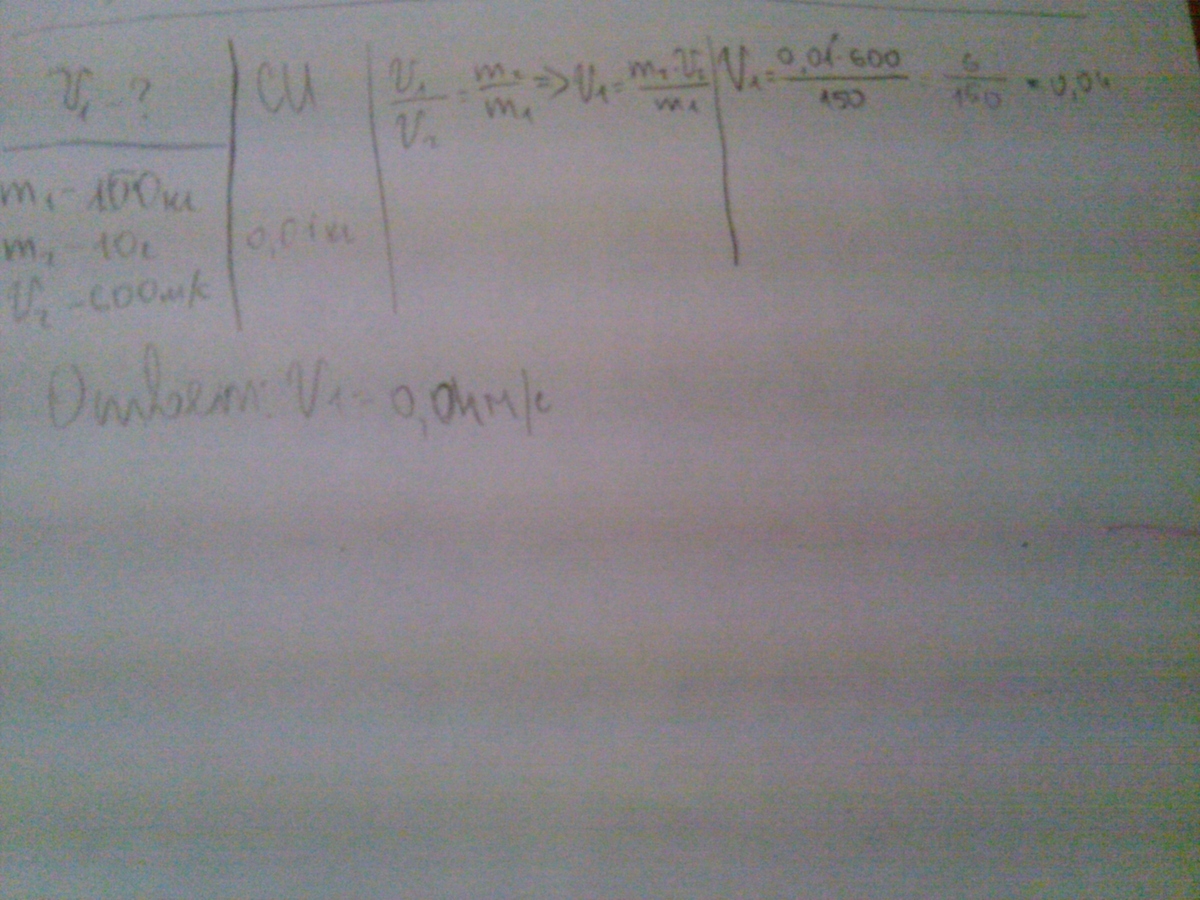 V₁ - ?
m₁ - 150кг
m₂ - 10г
V₂ - 600м/с
СИ
0,01кг
V₁/V₂ = m₂/m₁ => V₁ = m₂·V₂/m₁
V₁ = 0,01·600/150 = 6/150 = 0,04
Ответ: V₁ = 0,04м/с